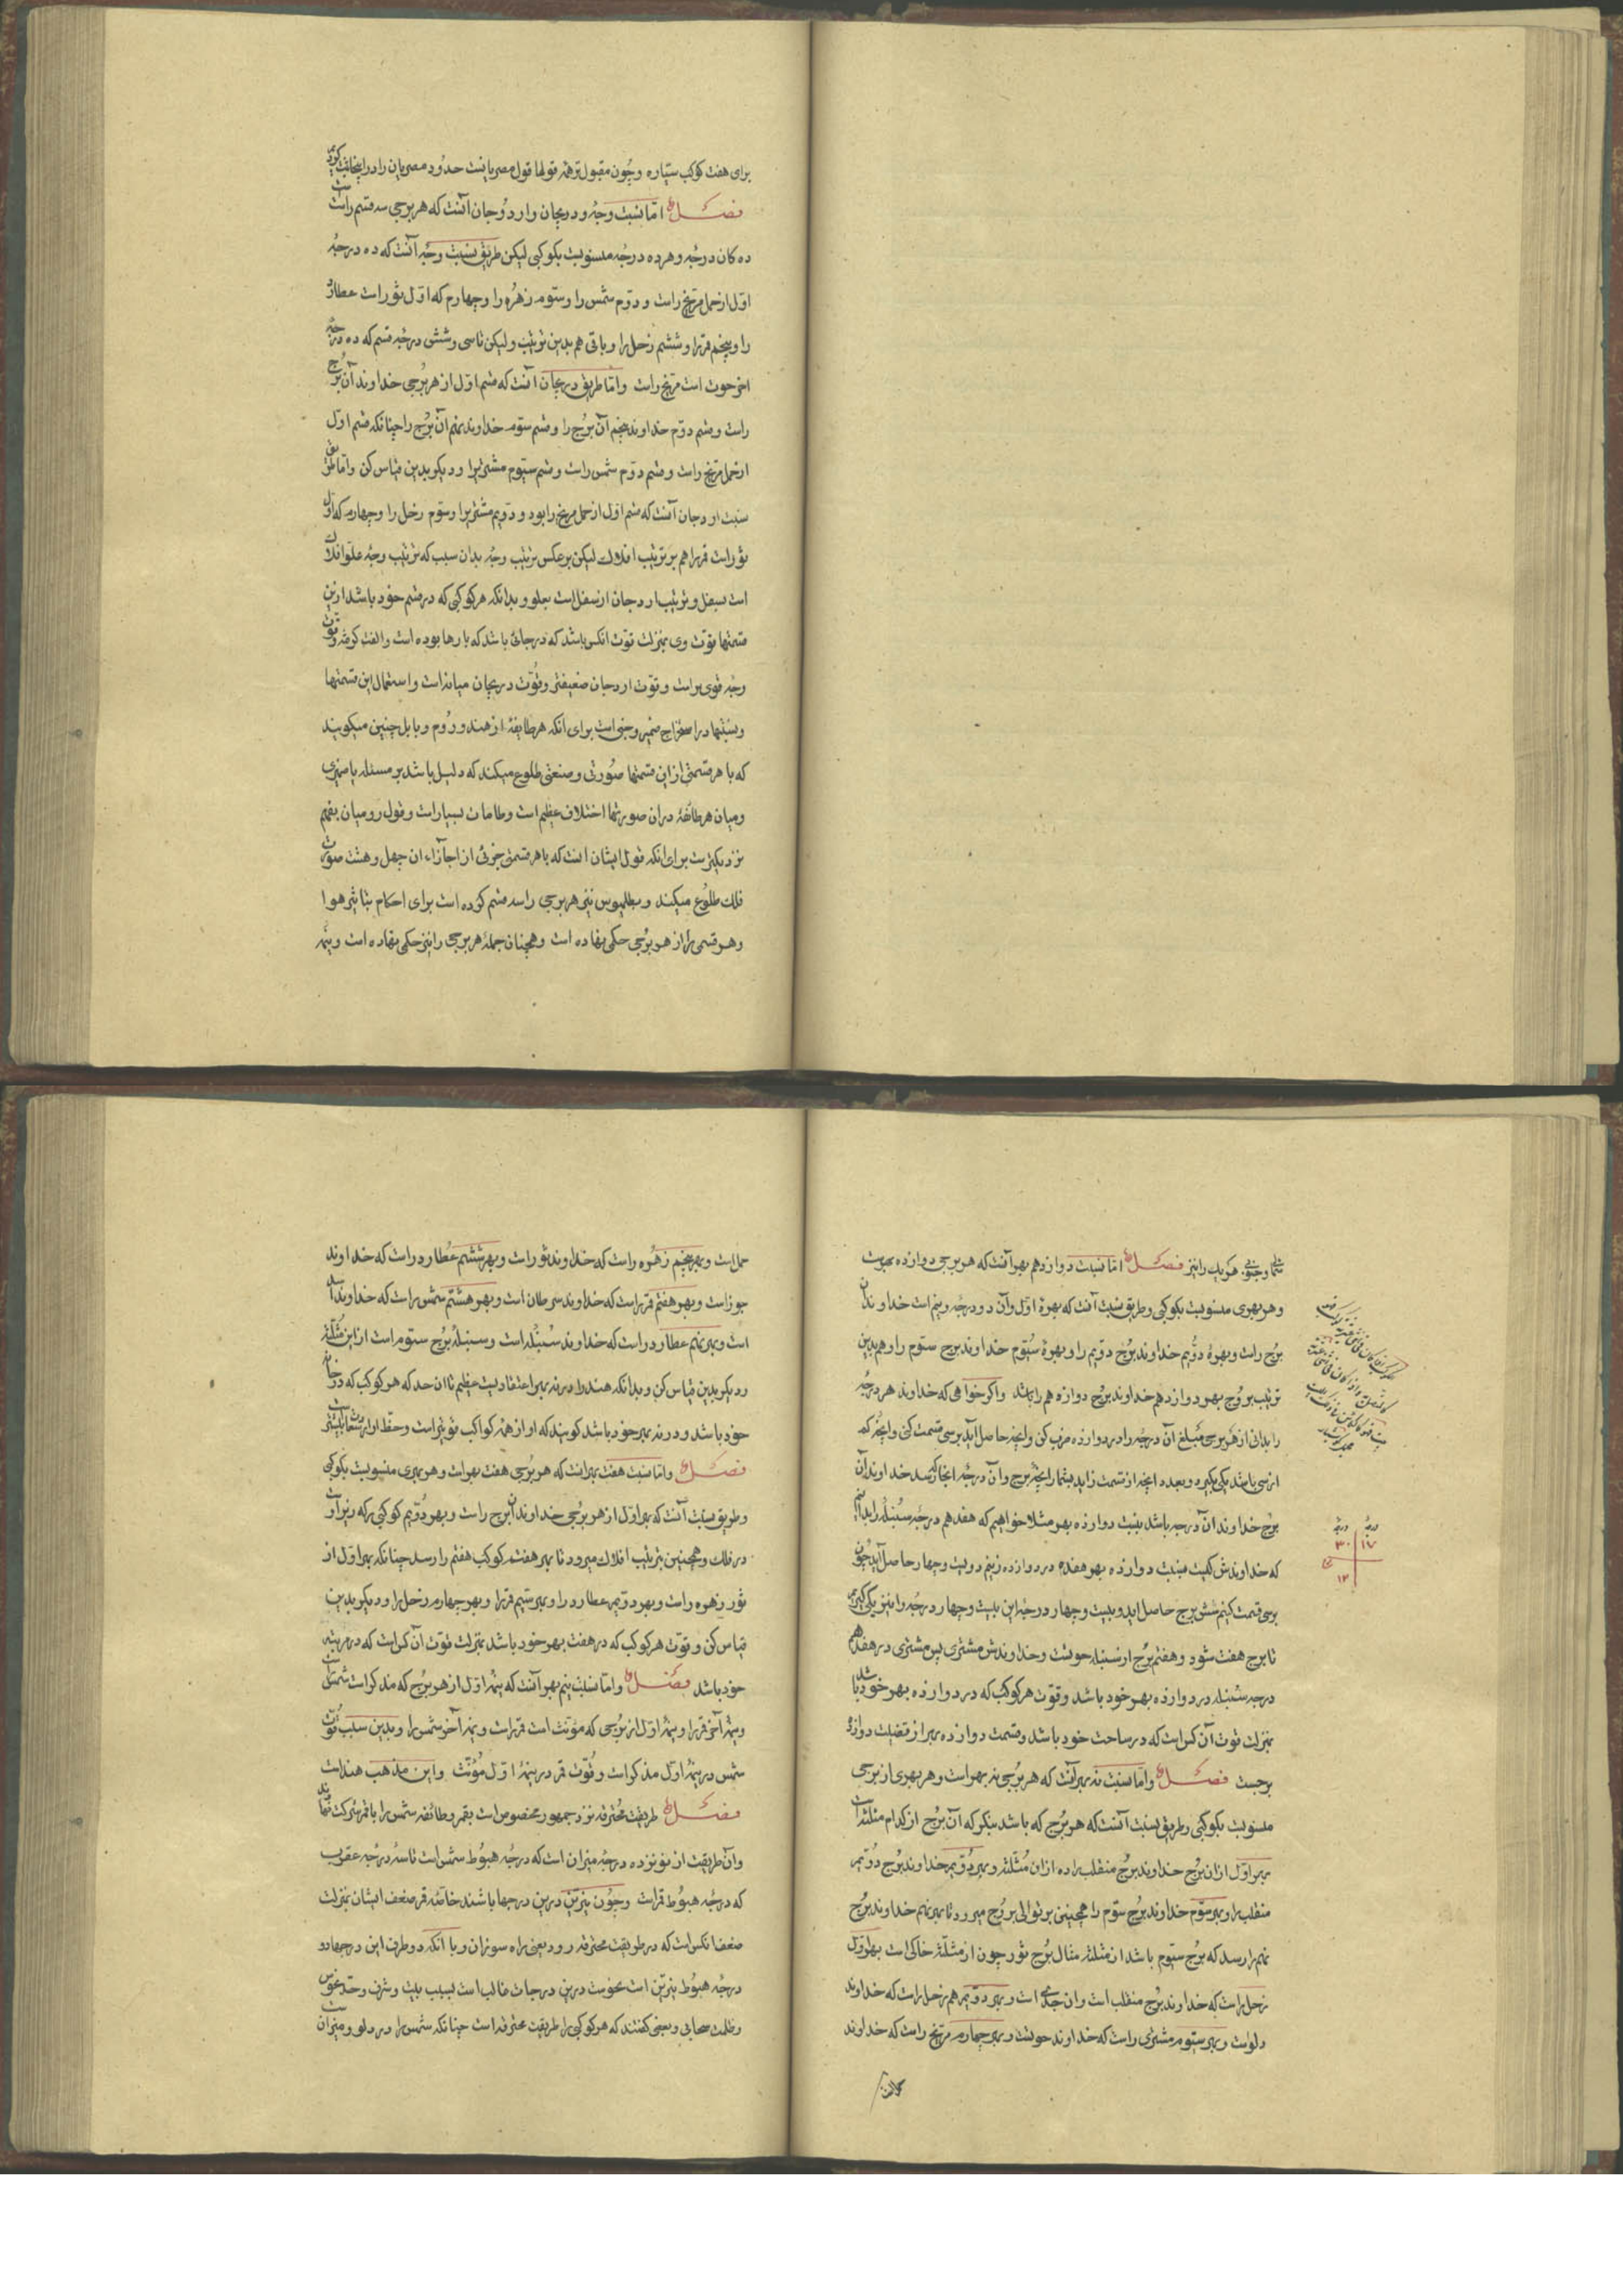 برای هفت کوکب سیاره وچون مقبول تر همه قولها قول مصریانست حدود مصریان را در اینجا ثبت کردیم
فصل اما نسبت وجه و دریجان و اردوجان آنست که هر برجی سه قسم راست
ده کان درجه و هر ده درجه منسوبست بکوکبی لیکن طریق نسبت وجه آنست که ده درجه
اول از حمل مریخ راست و دوم شمس را و سوم زهره را و چهارم که اول ثور است عطارد
را و پنجم قمر را و ششم زحل را و باقی هم بدین ترتیب و لیکن تا سی و شش درجه قسم که ده درجه
اخر حوت است مریخ راست و اما طریق دریجان آنست که قسم اول از هر برجی خداوند آن برج
راست و قسم دوم خداوند پنجم آن برج را و قسم سوم خداوند نهم آن برج را چنانکه قسم اول
از حمل مریخ راست و قسم دوم شمس راست و قسم سیوم مشتری را و دیگر بدین قیاس کن و اما طریق
نسبت اردجان آنست که قسم اول از حمل مریخ را بود و دویم مشتری را و سوم زحل را و چهارم که اول
ثور است قمر را هم بر ترتیب افلاک لیکن بر عکس ترتیب وجه بدان سبب که ترتیب وجه از علو افلاک
است بسفل و ترتیب اردجان از سفل است بعلو و بدانکه هر کوکبی که در قسم خود باشد ازین
قسمتها قوت وی بمنزلت قوت انکس باشد که در جائی باشد که بارها بوده است و الفت گرفته و قوت
وجه قوی تر است و قوت اردجان ضعیفتر و قوت دریجان میانه است و استعمال این قسمتها
و نسبتها در استخراج ضمیر و خبی است برای انکه هر طایفهٔ از هند و روم و بابل چنین میگویند
که با هر قسمتی ازین قسمتها صورتی و صنعتی طلوع میکند که دلیل باشد بر مسئله یا ضمیری
و میان هر طائفهٔ دران صورتها اختلاف عظیم است و طامات بسیار است و قول رومیان بفهم
نزدیکترست برای انکه قول ایشان انست که با هر قسمتی جزئی از اجزاء ان چهل و هشت صورت
فلک طلوع میکند و بطلمیوس نیز هر برجی را سه قسم کرده است برای احکام تاثیر هوا
و هر قسمی را از هر برجی حکمی نهاده است و همچنان جملهٔ هر برجی را نیز حکمی نهاده است و نیمه
شمالی و جنوبی هر یک را نیز فصل اما نسبت دوازدهم بهر آنست که هر برجی دوازده بهرست
و هر بهری منسوبست بکوکبی و طریق نسبت آنست که بهرهٔ اول و آن دو درجه و نیم است خداوند آن
برج راست و بهرهٔ دویم خداوند برج دویم را و بهرهٔ سیوم خداوند برج سوم را و هم بدین
ترتیب بروج بهر دوازدهم خداوند برج دوازدهم را باشد و اگر خواهی که خداوند هر درجه
را بدانی از هر برجی مبلغ آن درجه را در دوازده ضرب کن و انچه حاصل آید بر سی قسمت کن و انچه کم
از سی باشد یکی بگیر و بعدد انچه از قسمت زاید بشمار انچه برج و آن درجه انجا که رسد خداوند آن
برج خداوند ان درجه باشد بنسبت دوازده بهر مثلا خواهیم که هفدهم درجهٔ سنبله را بدانیم
که خداوندش کیست بنسبت دوازده بهر هفده در دوازده زنیم دویست و چهار حاصل آید چون
بر سی قسمت کنیم شش برج حاصل اید و بیست و چهار درجه این بیست و چهار درجه را نیز یکی گیریم
تا برج هفت شود و هفتم برج از سنبله حوتست و خداوندش مشتری پس مشتری در هفدهم
درجه سنبله در دوازده بهر خود باشد و قوت هر کوکب که در دوازده بهر خود باشد
بمنزلت قوت آن کس است که در ساحت خود باشد و قسمت دوازده بهر از قضیت دوازده
برجست فصل و اما نسبت نه بهر آنست که هر برجی نه بهر است و هر بهری از برجی
منسوبست بکوکبی و طریق نسبت آنست که هر برج که باشد بنگر که آن برج از کدام مثلثه است
بهر اول از ان برج خداوند برج منقلب را ده ازان مثلثه و بهر دویم خداوند برج دویم
منقلب را و بهر سوم خداوند برج سوم را همچنین بر توالی بروج میرود تا بهر نهم خداوند برج
نهم را رسد که برج سیوم باشد از مثلثه مثال برج ثور چون از مثلثه خاکی است بهر اول
زحل راست که خداوند برج منقلب است و ان جدی است و بهر دویم هم زحل راست که خداوند
دلوست و بهر سیوم مشتری راست که خداوند حوتست و بهر چهارم مریخ راست که خداوند
درجه درجه
۱۷ ۳۰
۱۲
حمل است و بهر پنجم زهره راست که خداوند ثور است و بهر ششم عطارد راست که خداوند
جوزاست و بهر هفتم قمر راست که خداوند سرطان است و بهر هشتم شمس راست که خداوند اسد
است و بهر نهم عطارد راست که خداوند سنبله است و سنبله برج سیوم است از این مثلثه
و دیگر بدین قیاس کن و بدانکه هند را در نه بهر اعتقادیست عظیم تا ان حد که هر کوکب که در خانه
خود باشد و در نه بهر خود باشد گویند که او از همه کواکب قویتر است و حظ او از سعادت بیشتر
فصل و اما نسبت هفت بهر انست که هر برجی هفت بهر است و هر بهری منسوبست بکوکبی
و طریق نسبت آنست که بهر اول از هر برجی خداوند آن برج راست و بهر دویم کوکبی را که زیر اوست
در فلک و همچنین بترتیب افلاک میرود تا بهر هفتم کوکب هفتم را رسد چنانکه بهر اول از
ثور زهره راست و بهر دویم عطارد را و بهر سیم قمر را و بهر چهارم زحل را و دیگر بدین
قیاس کن و قوت هر کوکب که در هفت بهر خود باشد بمنزلت قوت آن کس است که در مرتبه
خود باشد فصل و اما نسبت نیم بهر آنست که نیمهٔ اول از هر برج که مذکر است شمس راست
و نیمهٔ آخر قمر را و نیمهٔ اول از برجی که مونث است قمر راست و نیمه آخر شمس را و بدین سبب قوت
شمس در نیمهٔ اول مذکر است و قوت قمر در نیمهٔ اول مونث و این مذهب هند است
فصل طریقت محترقه نزد جمهور مخصوص است بقمر و طائفه شمس را با قمر شرکت نهاده اند
و آن طریقت از نوزده درجه میزان است که درجه هبوط شمس است تا سهٔ درجه عقرب
که درجه هبوط قمر است و چون نیرین درین درجها باشند خاصّه قمر ضعف ایشان بمنزلت
ضعف انکس است که در طریقت محترقه رود یعنی راه سوزان و با انکه دو طرف این درجها دو
درجه هبوط نیرین است نحوست درین درجات غالب است بسبب بیت و شرف و حد نحوس
و ظلمت سحابی و بعضی گفتند که هر کوکبی را طریقت محترقه است چنانکه شمس را در دلو و میزان است